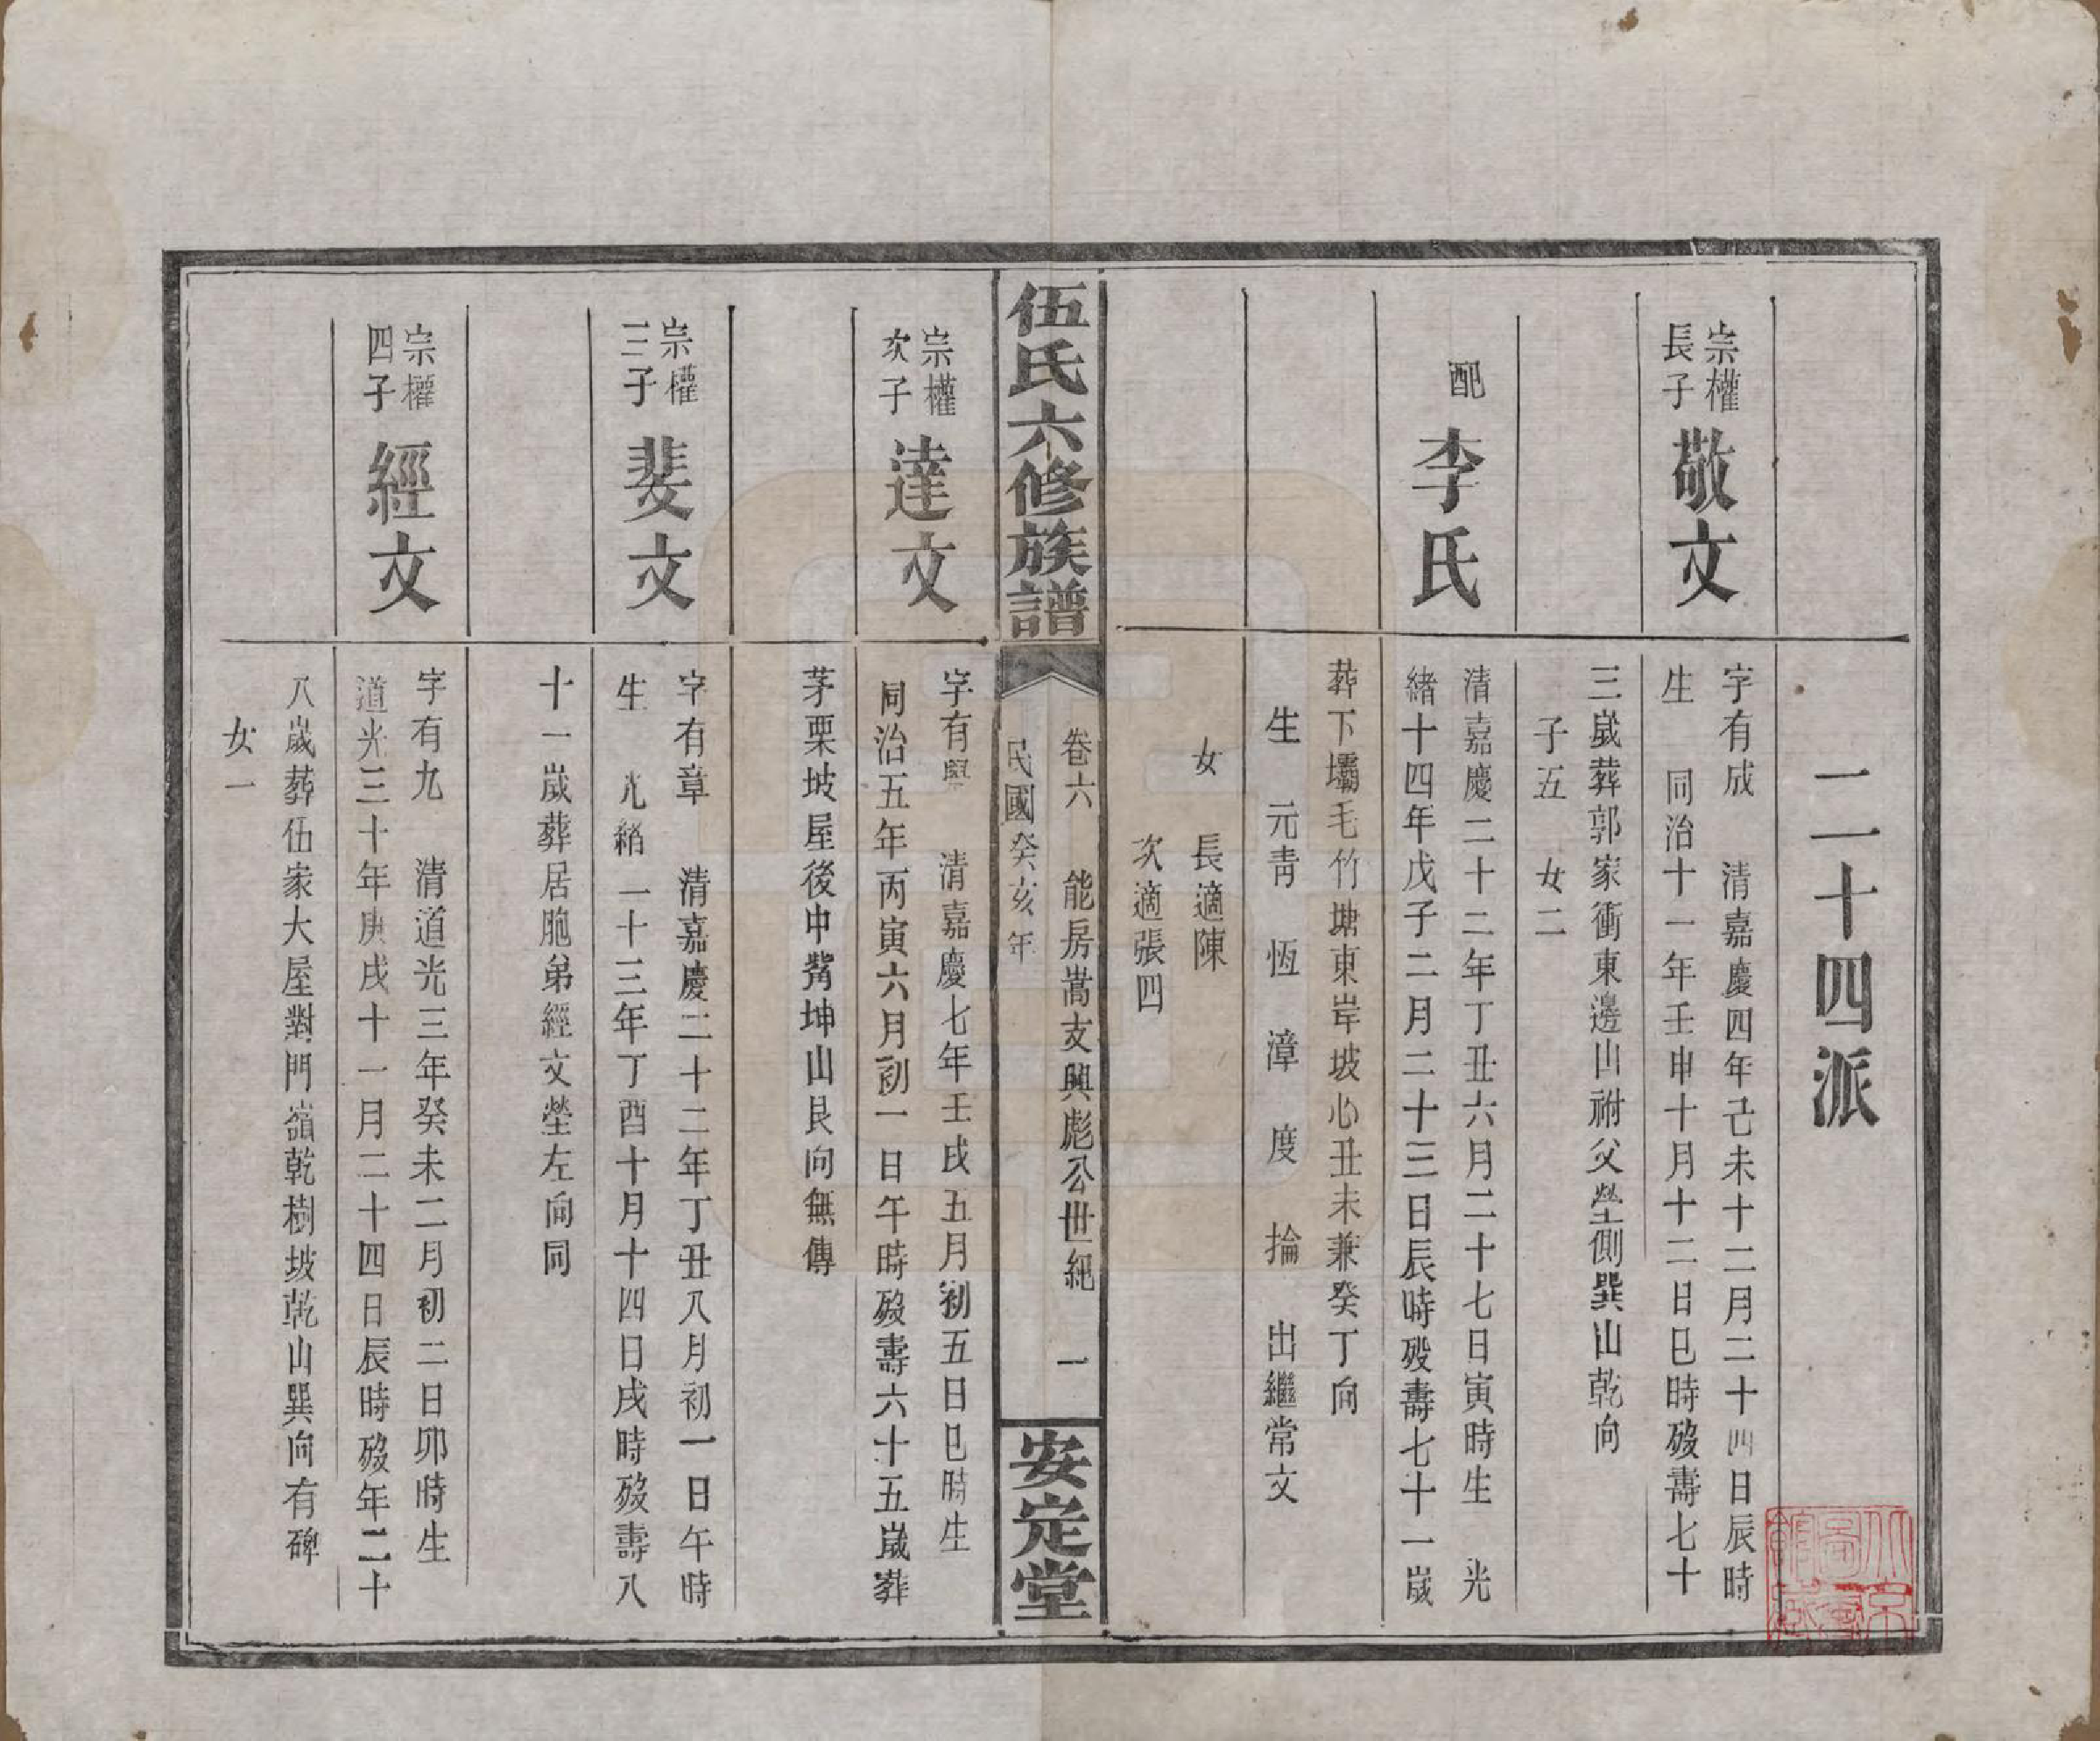 二十四派
宗權
長子
敬文
字有成 清嘉慶四年己未十二月二十四日辰時
生 同治十一年壬申十月十二日巳時歿壽七十
三歲葬郭家衝東邊山祔父塋側巽山乾向
子五 女二
配
李氏
清嘉慶二十二年丁丑六月二十七日寅時生 光
緒十四年戊子二月二十三日辰時歿壽七十一歲
葬下壩毛竹塘東岸坡心丑未兼癸丁向
生 元青 恆 漳 度 掄 出繼常文
女 長適陳
次適張四
伍氏六修族譜
卷六 能房嵩支興彪公世紀 一
民國癸亥年
安定堂
宗權
次子
達文
字有興 清嘉慶七年壬戌五月初五日巳時生
同治五年丙寅六月初一日午時歿壽六十五歲葬
茅栗坡屋後中嘴坤山艮向無傳
宗權
三子
斐文
字有章 清嘉慶二十二年丁丑八月初一日午時
生 光緒二十三年丁酉十月十四日戌時歿壽八
十一歲葬居胞弟經文塋左向同
宗權
四子
經文
字有九 清道光三年癸未二月初二日卯時生
道光三十年庚戌十一月二十四日辰時歿年二十
八歲葬伍家大屋對門嶺乾樹坡乾山巽向有碑
女一